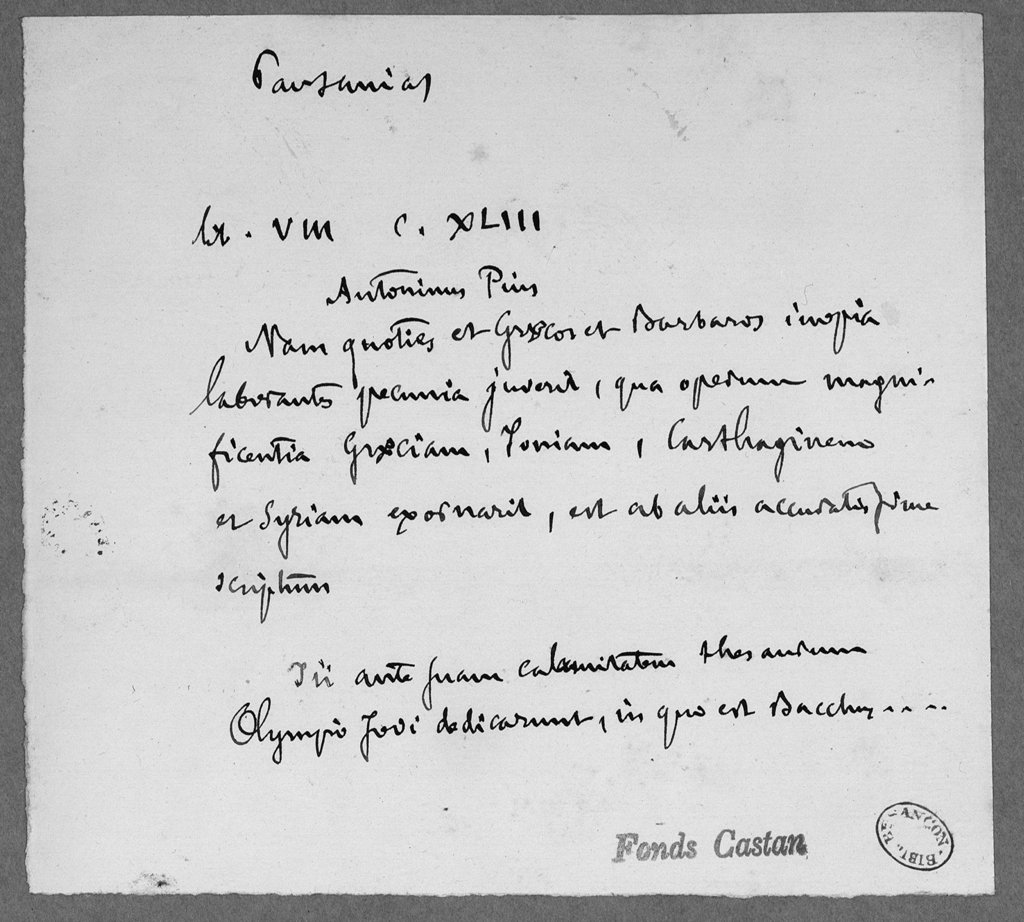 Pausanias
lib. VIII C. XLIII
Antoninus Pius
Nam quoties et Græcos et Barbaros inopia
laborantes pecunia juverit, qua operum magni-
ficentia Græciam, Ioniam, Carthaginem
et Syriam exornarit, est ab aliis accuratissime
scriptum
Ii ante suam calamitatem thesaurum
Olympio Jovi dedicarunt, in quo est Bacchus....
Fonds Castan
BIBL. BESANÇON.